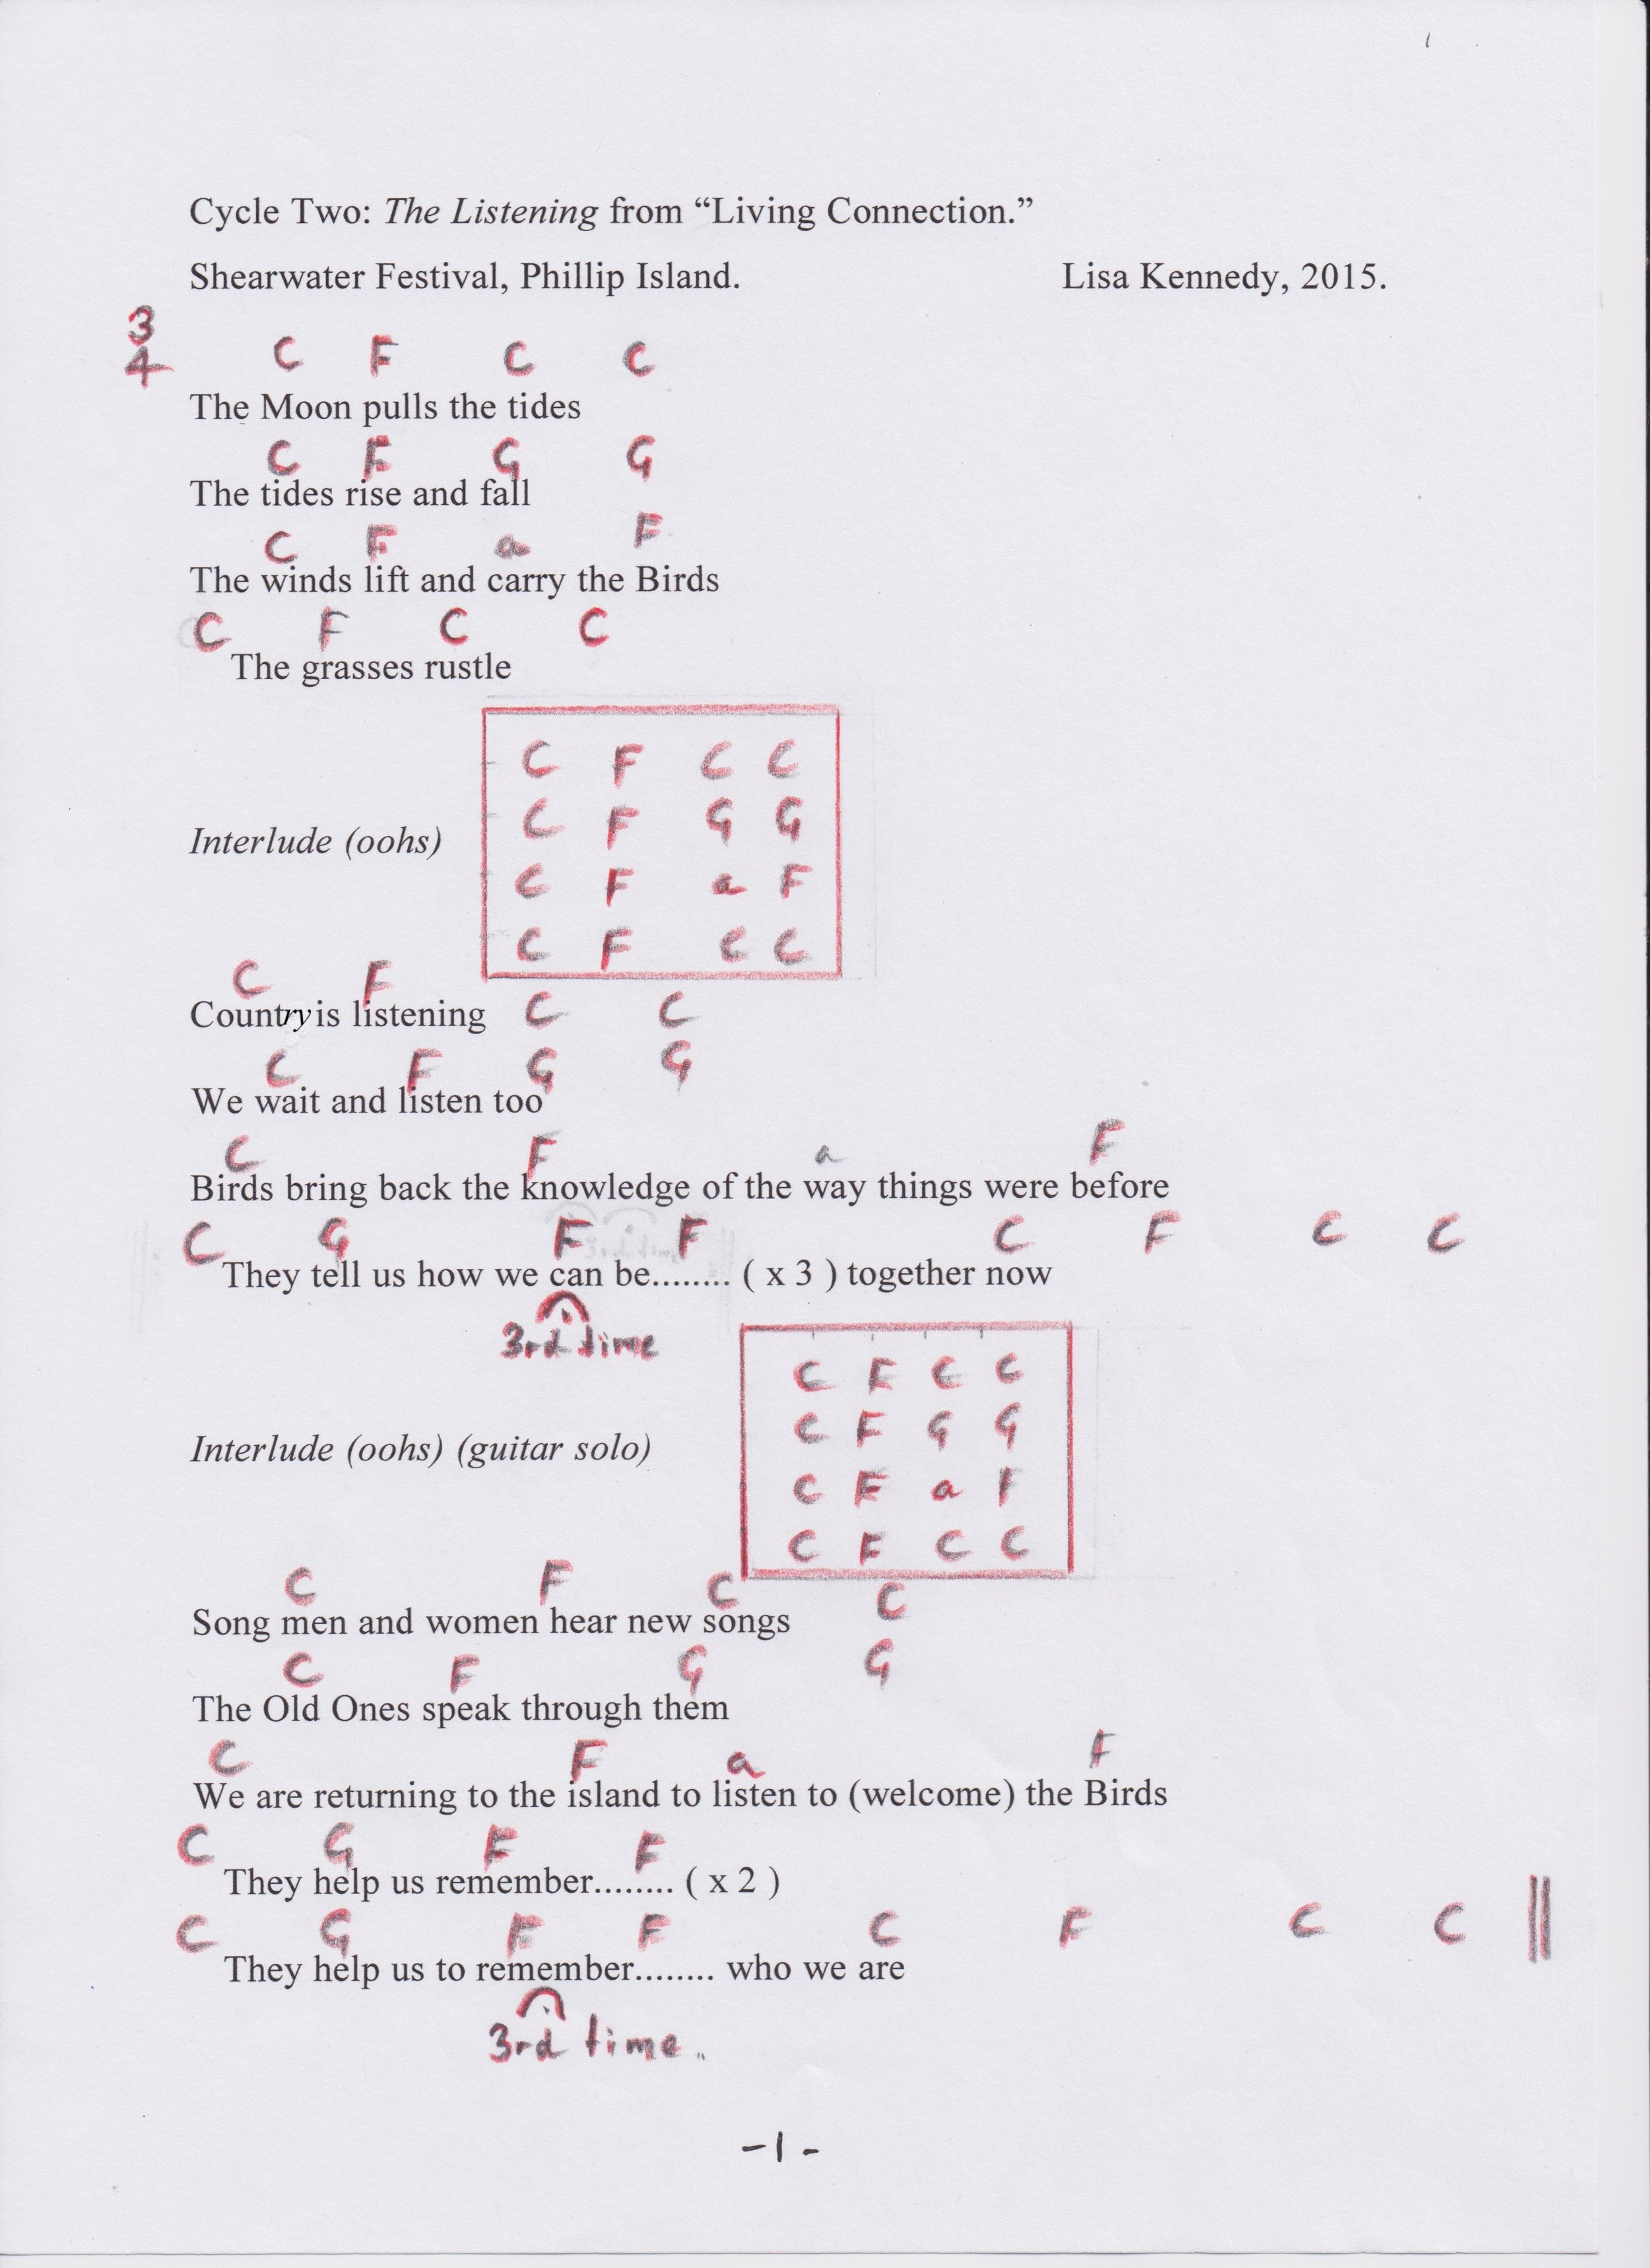 Cycle Two: The Listening from “Living Connection.”
Shearwater Festival, Phillip Island. Lisa Kennedy, 2015.
3
4 C F C C
The Moon pulls the tides
C F G G
The tides rise and fall
C F a F
The winds lift and carry the Birds
C F C C
The grasses rustle
C F C C
C F G G
Interlude (oohs)
C F a F
C F C C
C F
Country is listening C C
C F G G
We wait and listen too
C F a F
Birds bring back the knowledge of the way things were before
C G F F C F C C
They tell us how we can be........ ( x 3 ) together now
3rd time
C F C C
C F G G
Interlude (oohs) (guitar solo)
C F a F
C F C C
C F C C
Song men and women hear new songs
C F G G
The Old Ones speak through them
C F a F
We are returning to the island to listen to (welcome) the Birds
C G F F
They help us remember........ ( x 2 )
C G F F C F C C
They help us to remember........ who we are
3rd time.
-1-